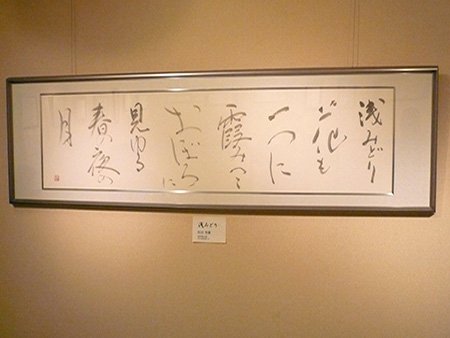 浅みどり
花も
一つに
霞みつつ
おぼろに
見ゆる
春の夜の
月
浅みどり